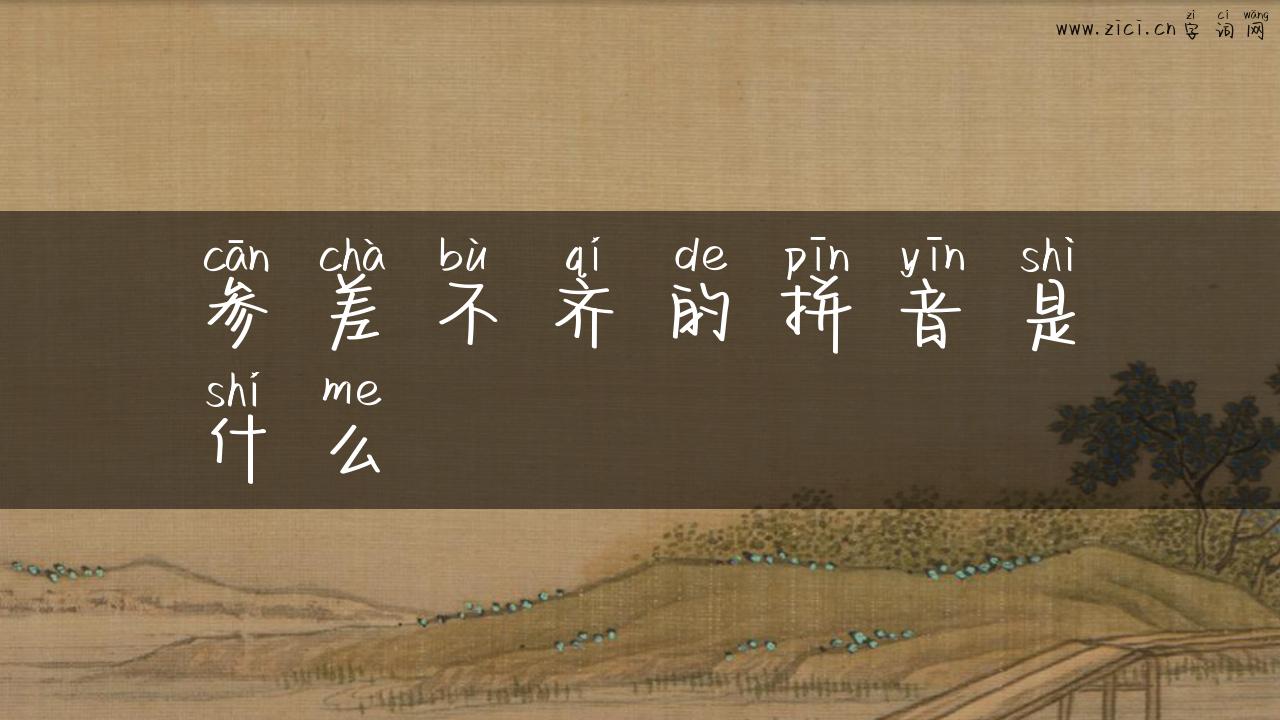 zì cí wǎng
www.zici.cn字词网
cān chà bù qí de pīn yīn shì
参差不齐的拼音是
shí me
什么